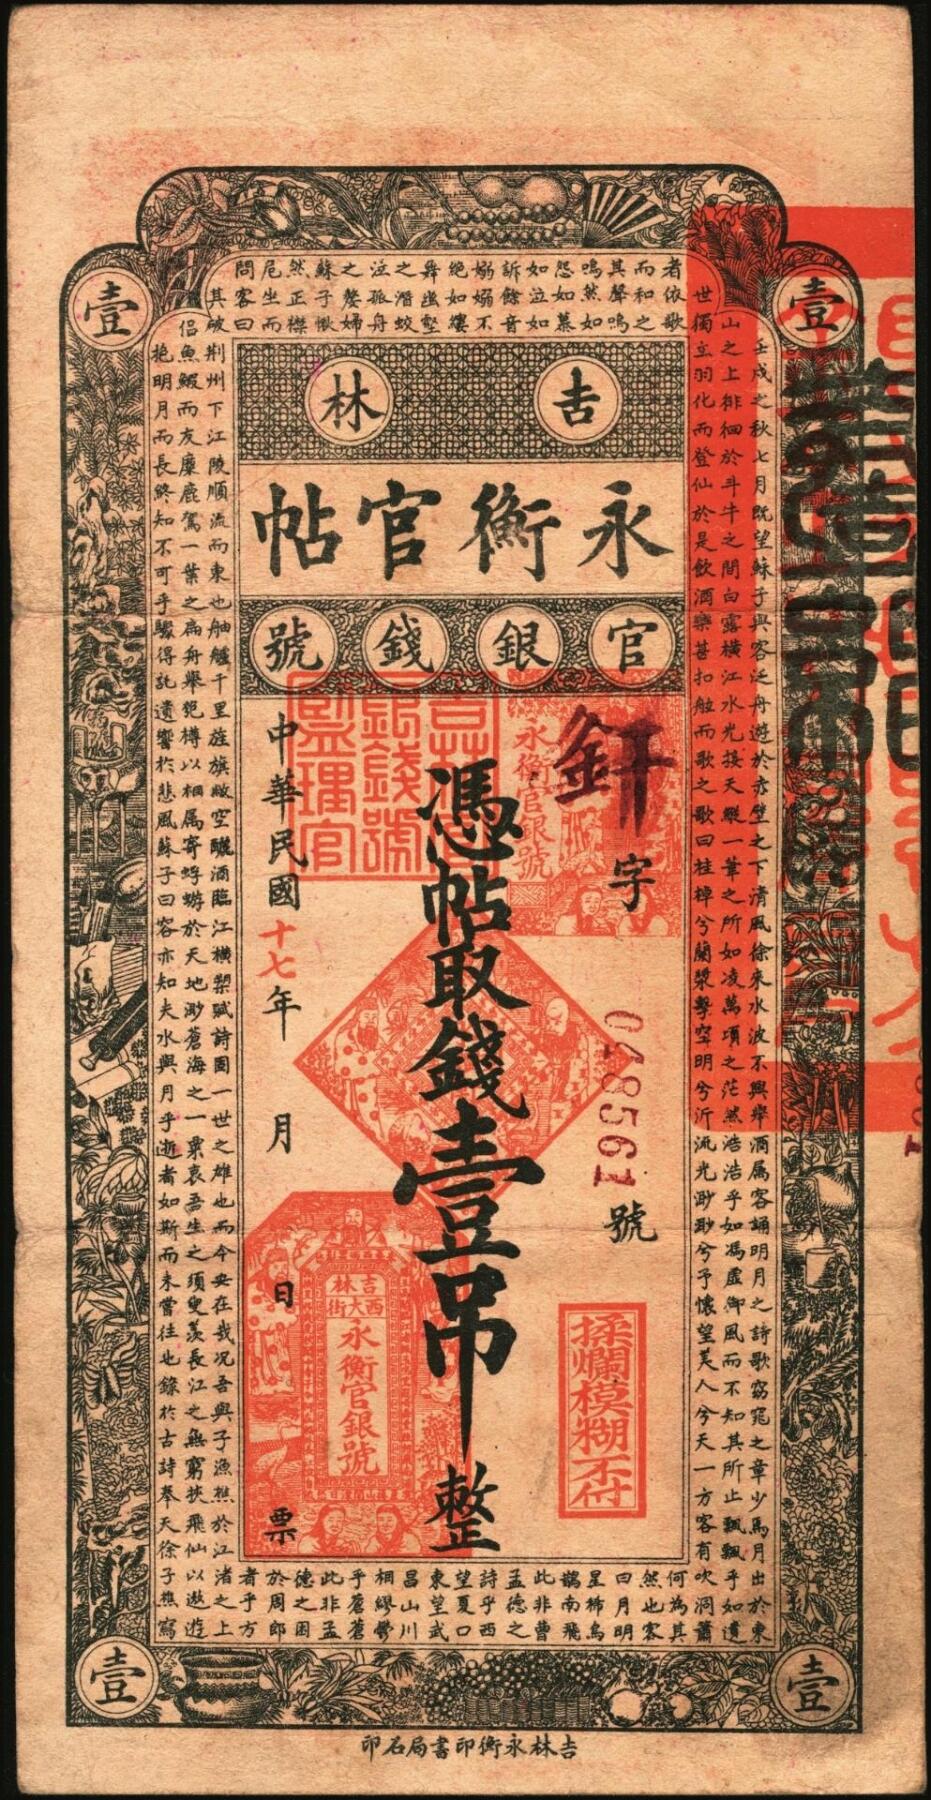 吉林
永衡官帖
官銀錢號
釬字
0485561
號
憑帖取錢壹吊整
中華民國十七年 月 日 票
吉林官銀錢號監理官
永衡官銀號
吉林
西大街
永衡官銀號
揉爛模糊不付
壹
壹
壹
壹
壬戌之秋七月既望蘇子與客泛舟遊於赤壁之下清風徐來水波不興舉酒屬客誦明月之詩歌窈窕之章少焉月出於東
山之上徘徊於斗牛之間白露橫江水光接天縱一葦之所如凌萬頃之茫然浩浩乎如馮虛御風而不知其所止飄飄乎如遺
世獨立羽化而登仙於是飲酒樂甚扣舷而歌之歌曰桂棹兮蘭槳擊空明兮沂流光渺渺兮予懷望美人兮天一方客有吹洞簫
者依歌
而和之
其聲嗚
嗚然如
怨如慕
如泣如
訴餘音
嫋嫋不
絕如縷
舞幽壑
之潛蛟
泣孤舟
之嫠婦
蘇子愀
然正襟
危坐而
問客曰
何為其
然也客
曰月明
星稀烏
鵲南飛
此非曹
孟德之
詩乎西
望夏口
東望武
昌山川
相繆鬱
乎蒼蒼
此非孟
德之困
於周郎
者乎方
其破荊州下江陵順流而東也舳艫千里旌旗蔽空釃酒臨江橫槊賦詩固一世之雄也而今安在哉況吾與子漁樵於江渚之上
侶魚鰕而友麋鹿駕一葉之扁舟舉匏樽以相屬寄蜉蝣於天地渺蒼海之一粟哀吾生之須臾羨長江之無窮挾飛仙以遨遊
抱明月而長終知不可乎驟得託遺響於悲風蘇子曰客亦知夫水與月乎逝者如斯而未嘗往也錄於古詩奉天徐子樵寫
吉林永衡印書局石印